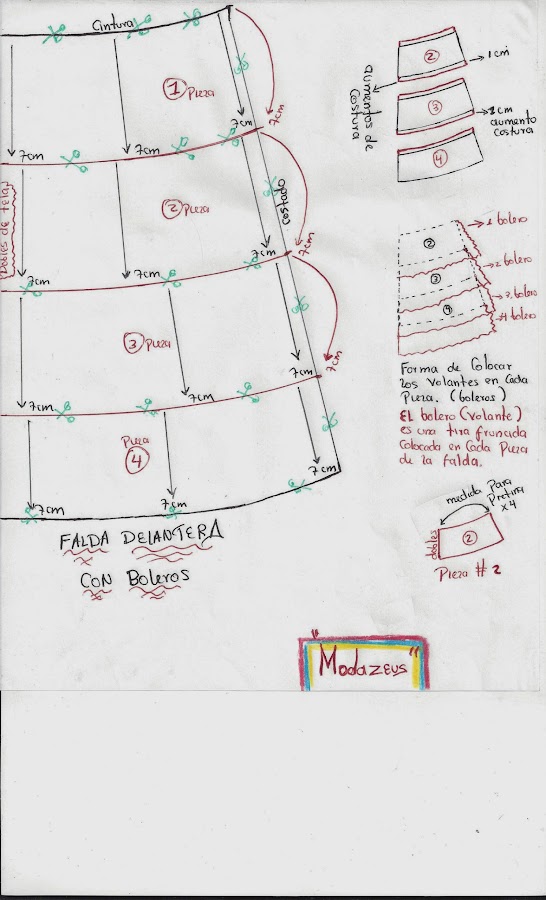 Cintura
1 Pieza
7cm
7cm
7cm
7cm
Dobles de tela
2 Pieza
costado
7cm
7cm
7cm
7cm
3 Pieza
7cm
7cm
7cm
7cm
Pieza
4
7cm
7cm
7cm
FALDA DELANTERA
CON Boleros
aumentos de
Costura
2
1cm
3
4
cm
aumento
costura
1 bolero
2
2 bolero
3
3 bolero
4
4 bolero
Forma de Colocar
los Volantes en Cada
Pieza. (boleros)
El bolero (Volante)
es una tira fruncida
Colocada en Cada Pieza
de la falda.
medida Para
Pretina
x4
dobles
2
Pieza # 2
"Modazeus"